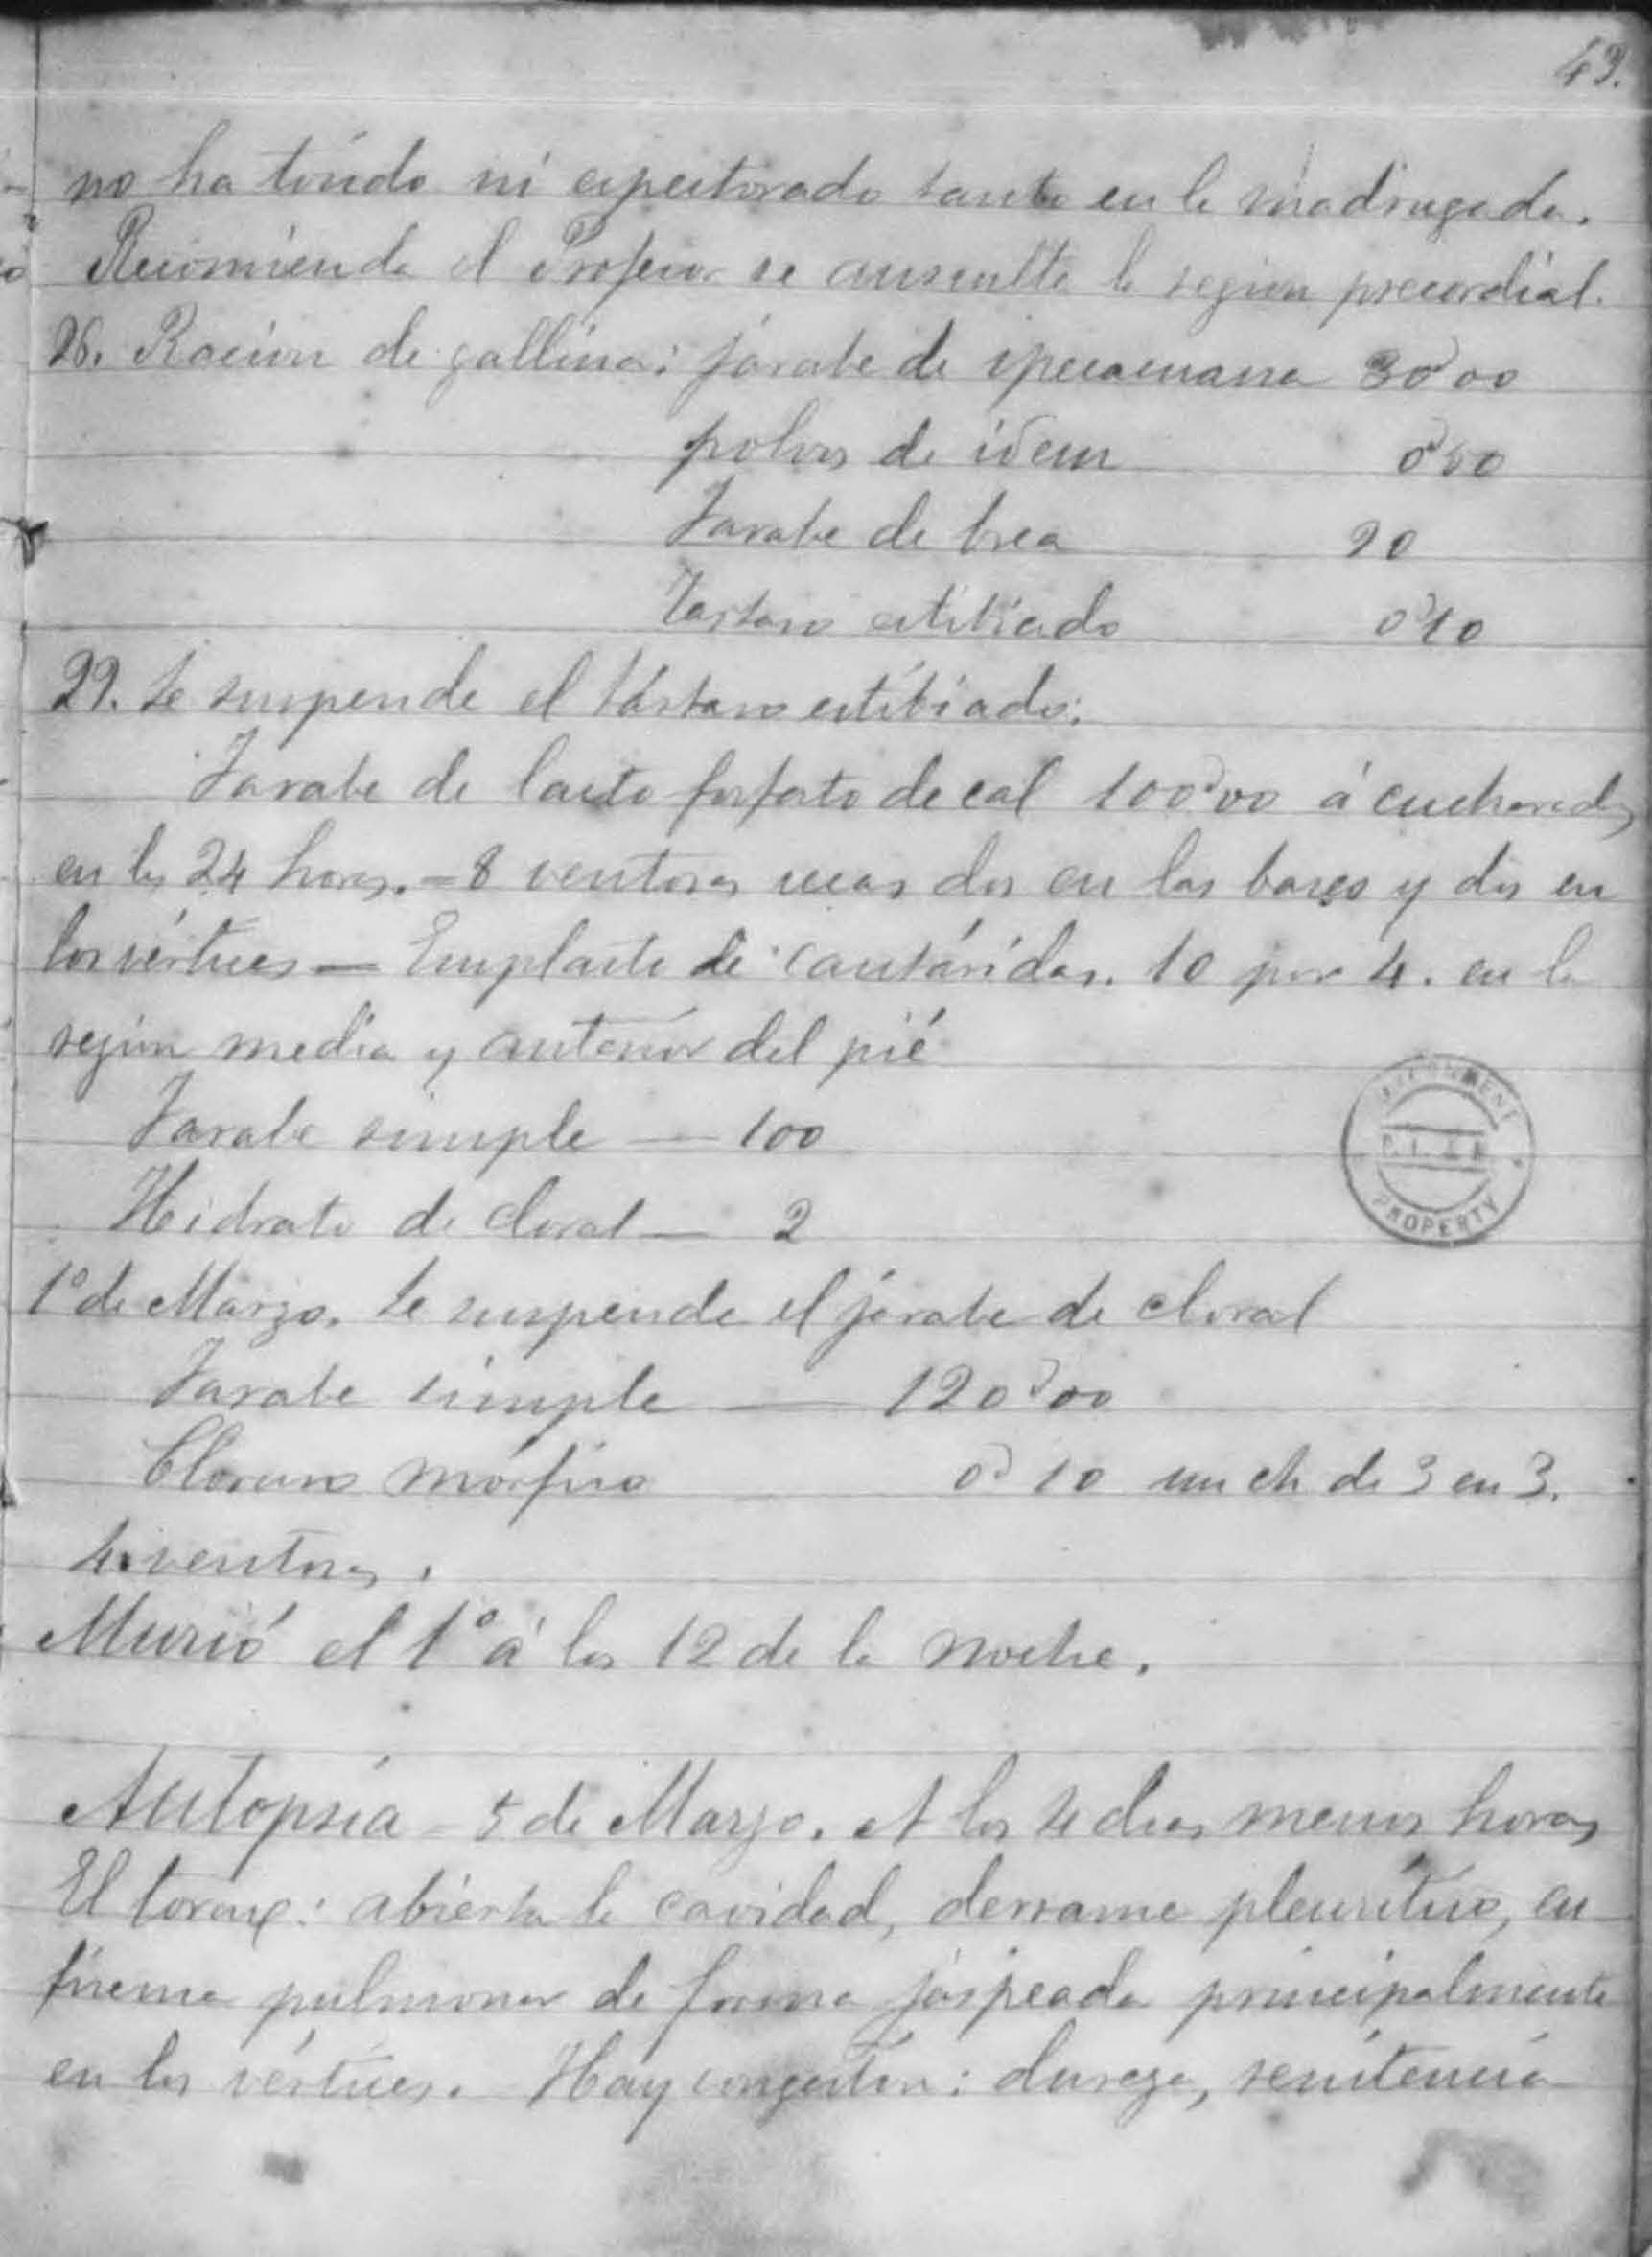 43.
no ha tosido ni espectorado tanto en la madrugada.
Recomienda el Profesor se ausculte la region precordial.
26. Racion de gallina: jarabe de ipecacuana 30'00
polvos de idem 0'50
Jarabe de brea 20
Tartaro estibiado 0'10
29. Se suspende el tártaro estibiado:
Jarabe de lacto fosfato de cal 100'00 á cucharadas
en las 24 horas. - 8 ventosas secas dos en las bases y dos en
los vértices — Emplasto de cantáridas. 10 por 4. en la
region media y anterior del
Jarabe simple — 100
Hidrato de cloral — 2
1º de Marzo. Se suspende el jarabe de cloral
Jarabe simple — 120'00
Cloruro mórfico 0'10 un ch de 3 en 3.
4 ventosas.
Murió el 1º á las 12 de la noche.
Autopsia - 5 de Marzo. A los 4 dias menos horas
El torax: abierta la cavidad, derrame pleuritico, en
fisema pulmonar de forma jaspeada principalmente
en los vértices. Hay congestión: dureza, renitencia
GOVERNMENT
P.I.R.
PROPERTY